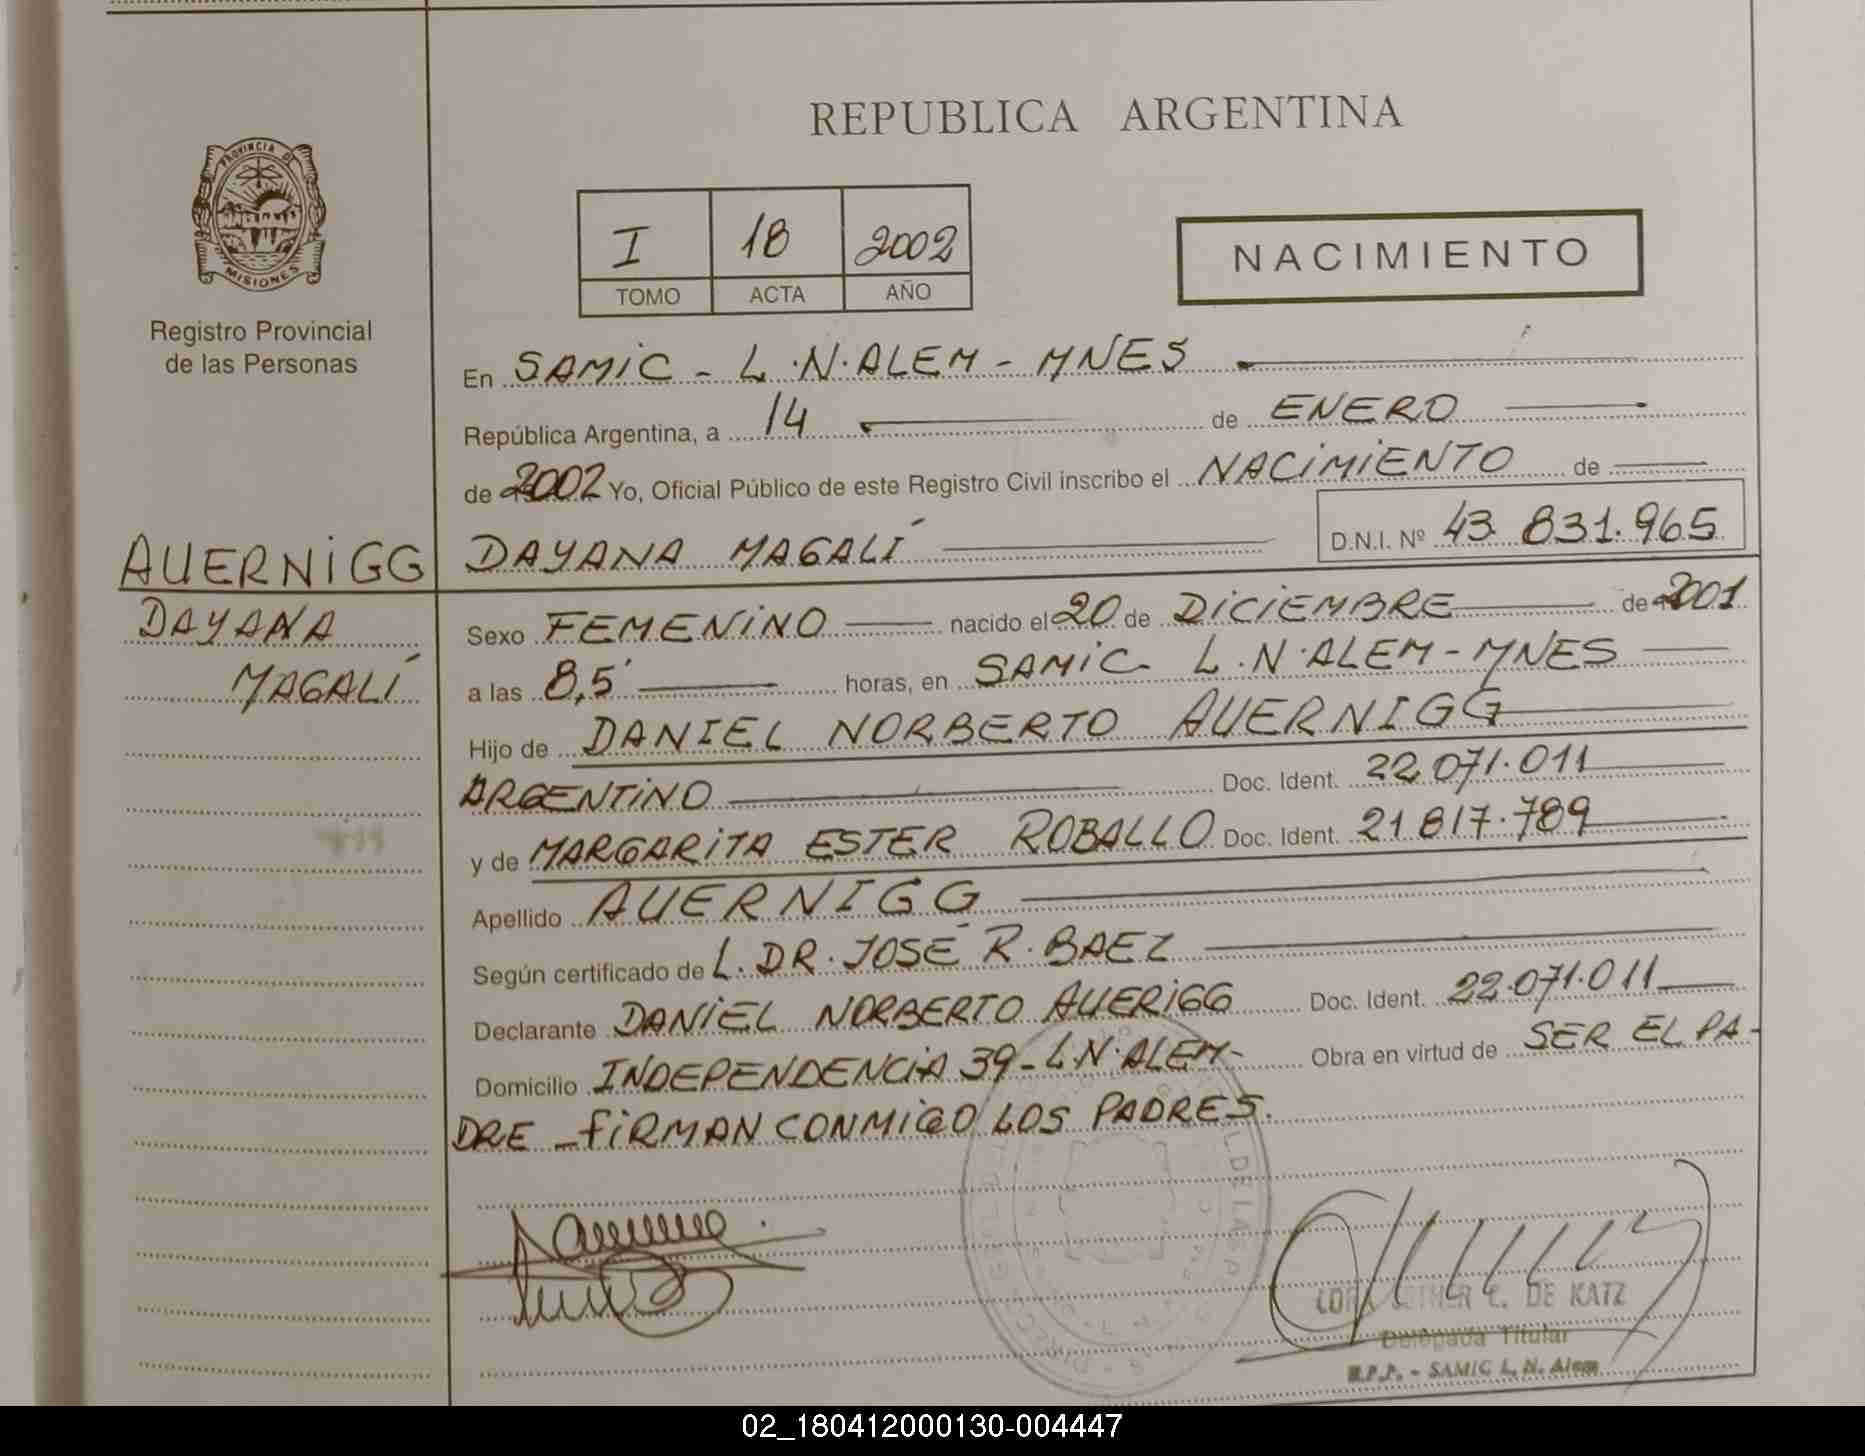 REPUBLICA ARGENTINA
PROVINCIA DE
MISIONES
Registro Provincial
de las Personas
I 18 2002
TOMO ACTA AÑO
NACIMIENTO
En SAMIC - L.N.ALEM - MNES
República Argentina, a 14 de ENERO
de 2002 Yo, Oficial Público de este Registro Civil inscribo el NACIMIENTO de
DAYANA MAGALÍ D.N.I. Nº 43 831.965
AUERNIGG
DAYANA
MAGALÍ
Sexo FEMENINO nacido el 20 de DICIEMBRE de 2001
a las 8,5' horas, en SAMIC - L.N.ALEM - MNES
Hijo de DANIEL NORBERTO AUERNIGG
ARGENTINO Doc. Ident. 22.071.011
y de MARGARITA ESTER ROBALLO Doc. Ident. 21 817.789
Apellido AUERNIGG
Según certificado de L. DR. JOSÉ R. BAEZ
Declarante DANIEL NORBERTO AUERIGG Doc. Ident. 22.071.011
Domicilio INDEPENDENCIA 39 - L.N.ALEM - Obra en virtud de SER EL PA-
DRE - FIRMAN CONMIGO LOS PADRES.
DE KATZ
Delegada Titular
R.P.P. - SAMIC L. N. Alem
02_180412000130-004447